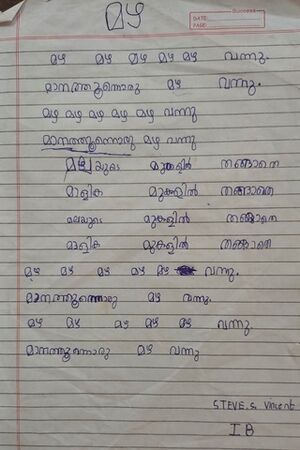 മഴ
Success
DATE:
PAGE:
മഴ മഴ മഴ മഴ മഴ വന്നു.
മാനത്തൂന്നൊരു മഴ വന്നു.
മഴ മഴ മഴ മഴ മഴ വന്നു
മാനത്തൂന്നൊരു മഴ വന്നു
മലയുടെ മുകളിൽ തങ്ങാതെ
മാളിക മുകളിൽ തങ്ങാതെ
മലയുടെ മുകളിൽ തങ്ങാതെ
മാളിക മുകളിൽ തങ്ങാതെ
മഴ മഴ മഴ മഴ മഴ വന്നു.
മാനത്തൂന്നൊരു മഴ വന്നു.
മഴ മഴ മഴ മഴ മഴ വന്നു.
മാനത്തൂന്നൊരു മഴ വന്നു
STEVE.S. Vincent
I B